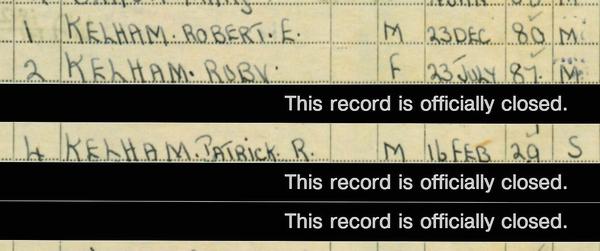 1 KELHAM. ROBERT. E. M 23 DEC 80 M
2 KELHAM. RUBY. F 23 JULY 87. M
This record is officially closed.
4 KELHAM. PATRICK. R. M 16 FEB 29 S
This record is officially closed.
This record is officially closed.